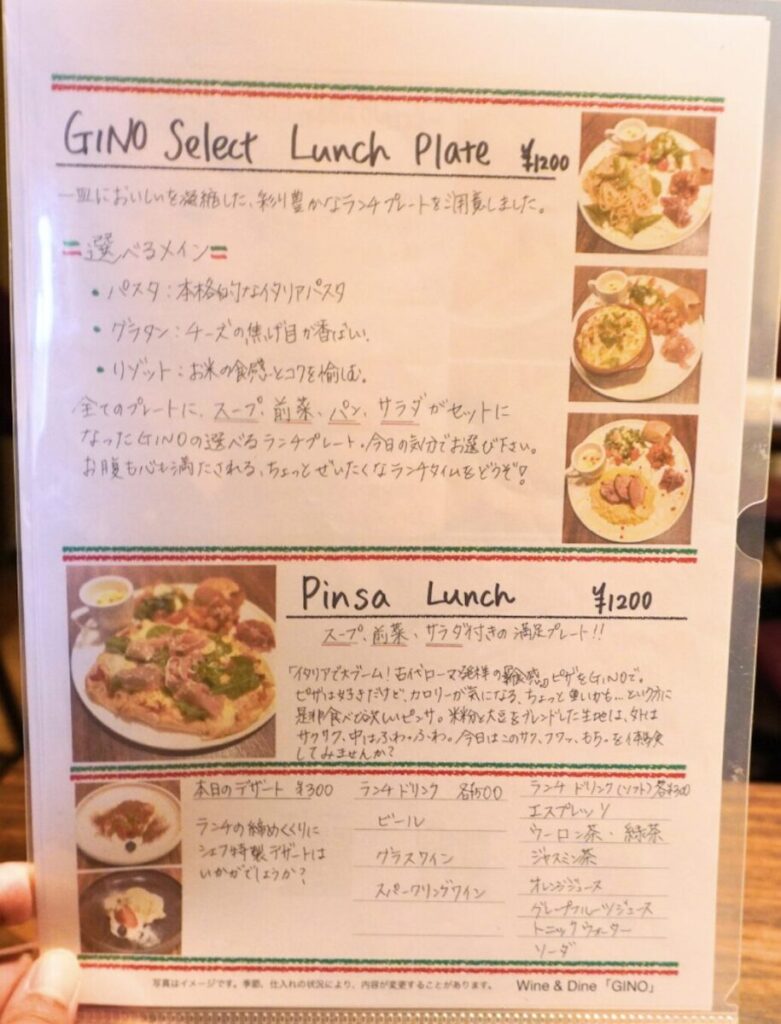 GINO Select Lunch Plate ¥1200
一皿においしいを凝縮した、彩り豊かなランチプレートをご用意しました。
選べるメイン
• パスタ：本格的なイタリアパスタ
• グラタン：チーズの焦げ目が香ばしい。
• リゾット：お米の食感とコクを愉しむ。
全てのプレートに、スープ、前菜、パン、サラダがセットに
なったGINOの選べるランチプレート。今日の気分でお選び下さい。
お腹も心も満たされる、ちょっとぜいたくなランチタイムをどうぞ!
Pinsa Lunch ¥1200
スープ、前菜、サラダ付きの満足プレート!!
「イタリアで大ブーム！古代ローマ発祥の『新食感』ピザをGINOで。
ピザは好きだけど、カロリーが気になる、ちょっと重いかも…という方に
是非食べて欲しいピンサ。米粉と大豆をブレンドした生地は、外は
サクサク、中はふわ・ふわ。今日はこのサク、フワッ、もち。を体験
してみませんか？
本日のデザート ¥300
ランチの締めくくりに
シェフ特製デザートは
いかがでしょうか？
ランチドリンク 各¥500
ビール
グラスワイン
スパークリングワイン
ランチドリンク(ソフト)各¥300
エスプレッソ
ウーロン茶・緑茶
ジャスミン茶
オレンジジュース
グレープフルーツジュース
トニックウォーター
ソーダ
写真はイメージです。季節、仕入れの状況により、内容が変更することがあります。 Wine & Dine「GINO」